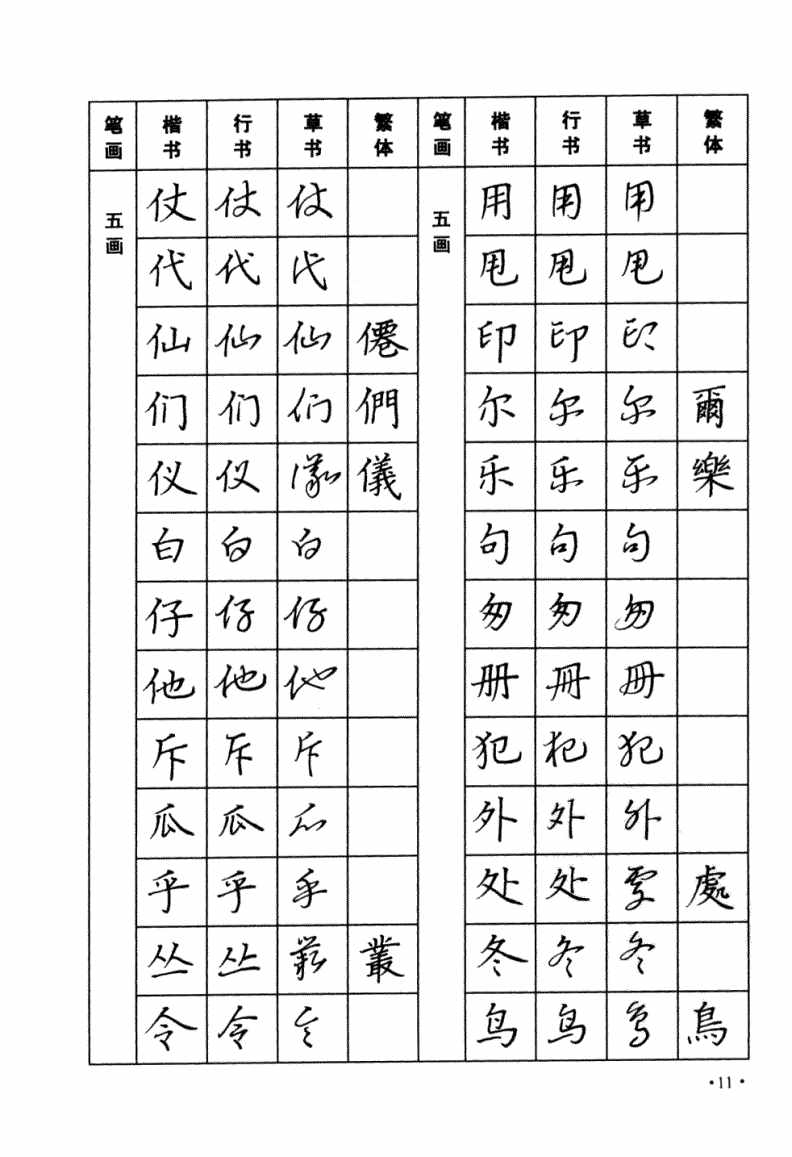 笔画 楷书 行书 草书 繁体 笔画 楷书 行书 草书 繁体
五画 仗 仗 仗 五画 用 用 用
代 代 代 甩 甩 甩
仙 仙 仙 僊 印 印 印
们 们 们 們 尔 尔 尔 爾
仪 仪 仪 儀 乐 乐 乐 樂
白 白 白 句 句 句
仔 仔 仔 匆 匆 匆
他 他 他 册 册 册
斥 斥 斥 犯 犯 犯
瓜 瓜 瓜 外 外 外
乎 乎 乎 处 处 处 處
丛 丛 丛 叢 冬 冬 冬
令 令 令 鸟 鸟 鸟 鳥
·11·